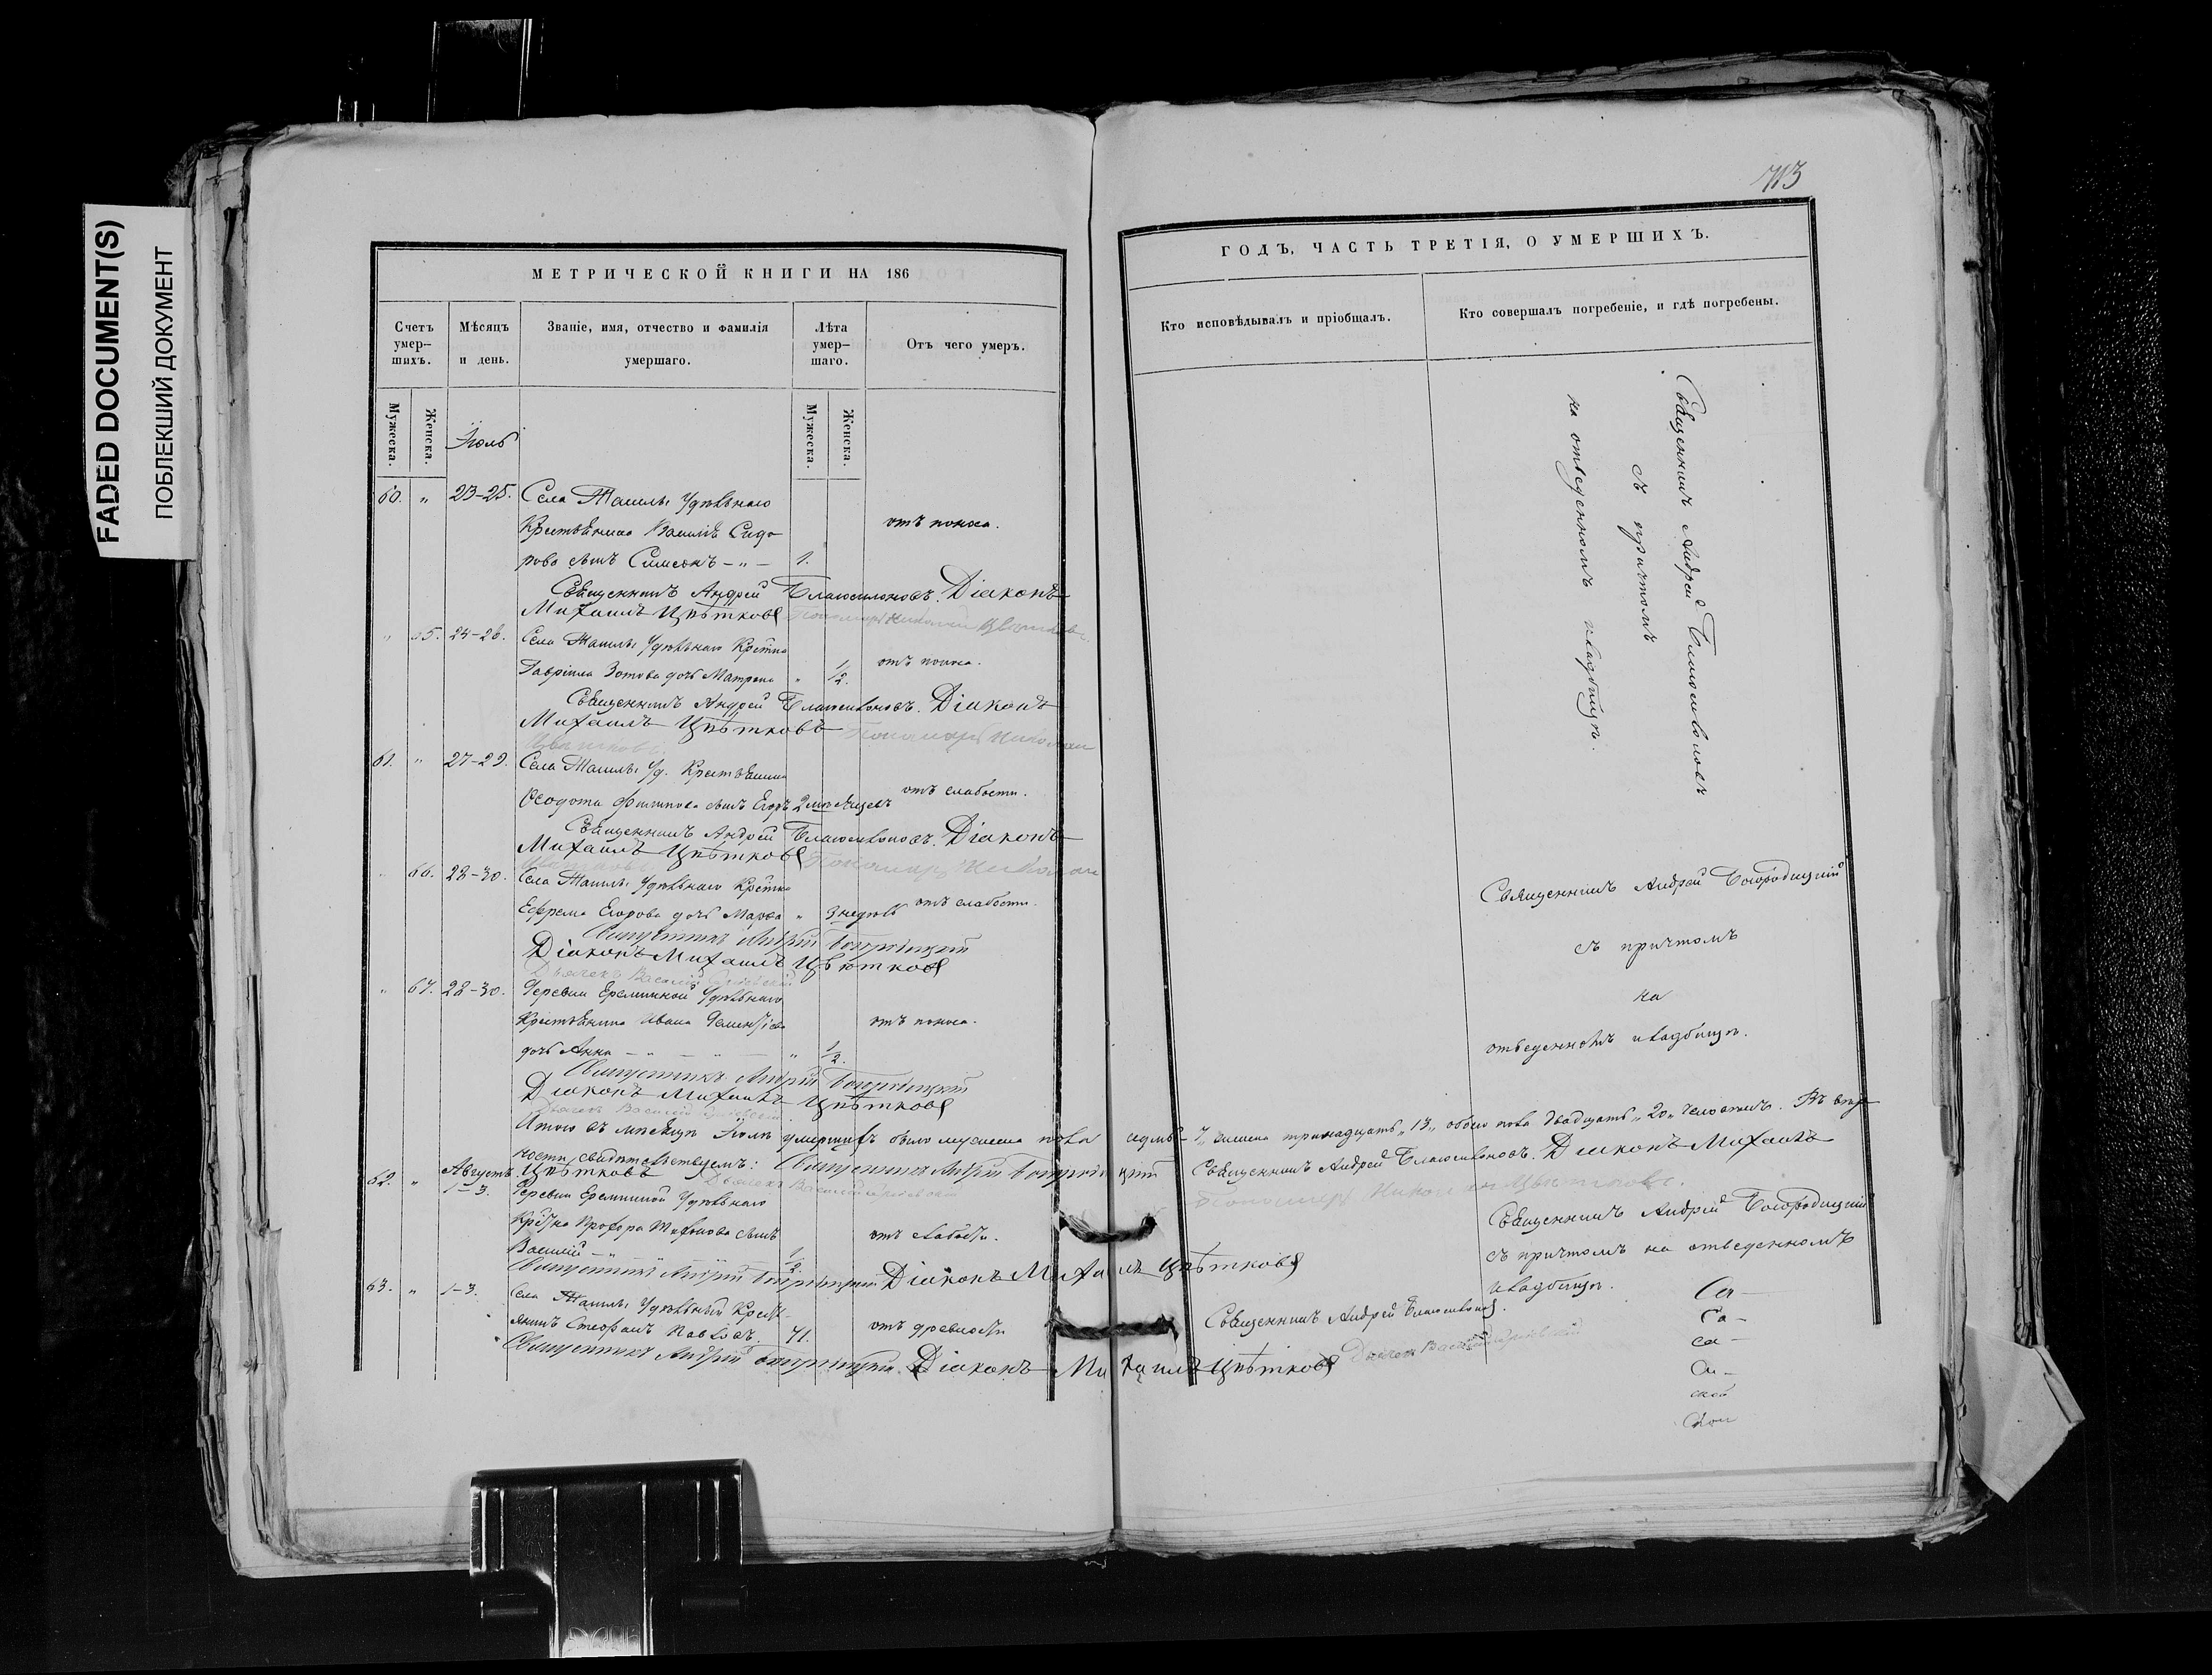 FADED DOCUMENT(S)
ПОБЛЕКШИЙ ДОКУМЕНТ
713
МЕТРИЧЕСКОЙ КНИГИ НА 186
Счетъ умер-шихъ.
Мѣсяцъ и день.
Званіе, имя, отчество и фамилія умершаго.
Лѣта умер-шаго.
Отъ чего умеръ.
Мужеска.
Женска.
Іюль
Мужеска.
Женска.
60. " 23-25. Села Удѣльнаго
Крестьянина Василія Сидо- отъ поноса.
рова сынъ Симеонъ - " - 1.
Священникъ Андрей Діаконъ
Михаилъ Цвѣтковъ Пономарь Николай Цвѣтковъ.
" 65. 24-26. Села Удѣльнаго Крестна
Гавріила Зотова дочь Матрона " 1/2. отъ поноса.
Священникъ Андрей Діаконъ
Михаилъ Цвѣтковъ Пономарь Николай
Цвѣтковъ.
61. " 27-29. Села Уд. Крестьянина
Ѳеодота Филипова сынъ Егоръ 2 мѣсяцевъ отъ слабости.
Священникъ Андрей Діаконъ
Михаилъ Цвѣтковъ Пономарь Николай
Цвѣтковъ
" 66. 28-30. Села Удѣльнаго Крестна
Ефрема Егорова дочь " 3 недѣль отъ слабости.
Священникъ Андрей Богородицкій
Діаконъ Михаилъ Цвѣтковъ
Дьячекъ Василій
" 67. 28-30. Деревни Ереминой Удѣльнаго
Крестьянина Ивана отъ поноса.
дочь Анна - " - " - " 1/2.
Священникъ Андрей Богородицкій
Діаконъ Михаилъ Цвѣтковъ
Дьячекъ Василій
Итого въ мѣсяцѣ Іюлѣ умершихъ было мужеска пола седмь - 7, женска тринадцать "13" обоего пола двадцать "20" человѣкъ. Въ вѣр-
ности свидѣтельствуемъ: Священникъ Андрей Богородицкій Священникъ Андрей Діаконъ Михаилъ
Цвѣтковъ Дьячекъ Василій Пономарь Николай Цвѣтковъ.
Августъ
62. " 1-3. Деревни Ереминой Удѣльнаго
Крестна Прохора сынъ отъ слабости.
Василій - " - 1/2.
Священникъ Андрей Богородицкій Діаконъ Михаилъ Цвѣтковъ
63. " 1-3. Села Удѣльный Кресть-
янинъ Стефанъ Павловъ. 71. отъ древности
Священникъ Андрей Богородицкій. Діаконъ Михаилъ Цвѣтковъ Дьячекъ Василій
ГОДЪ, ЧАСТЬ ТРЕТІЯ, О УМЕРШИХЪ.
Кто исповѣдывалъ и пріобщалъ.
Кто совершалъ погребеніе, и гдѣ погребены.
Священникъ Андрей
съ причтомъ
на отведенномъ кладбищѣ.
Священникъ Андрей Богородицкій
съ причтомъ
на
отведенномъ кладбищѣ.
Священникъ Андрей Богородицкій
съ причтомъ на отведенномъ
кладбищѣ.
Священникъ Андрей